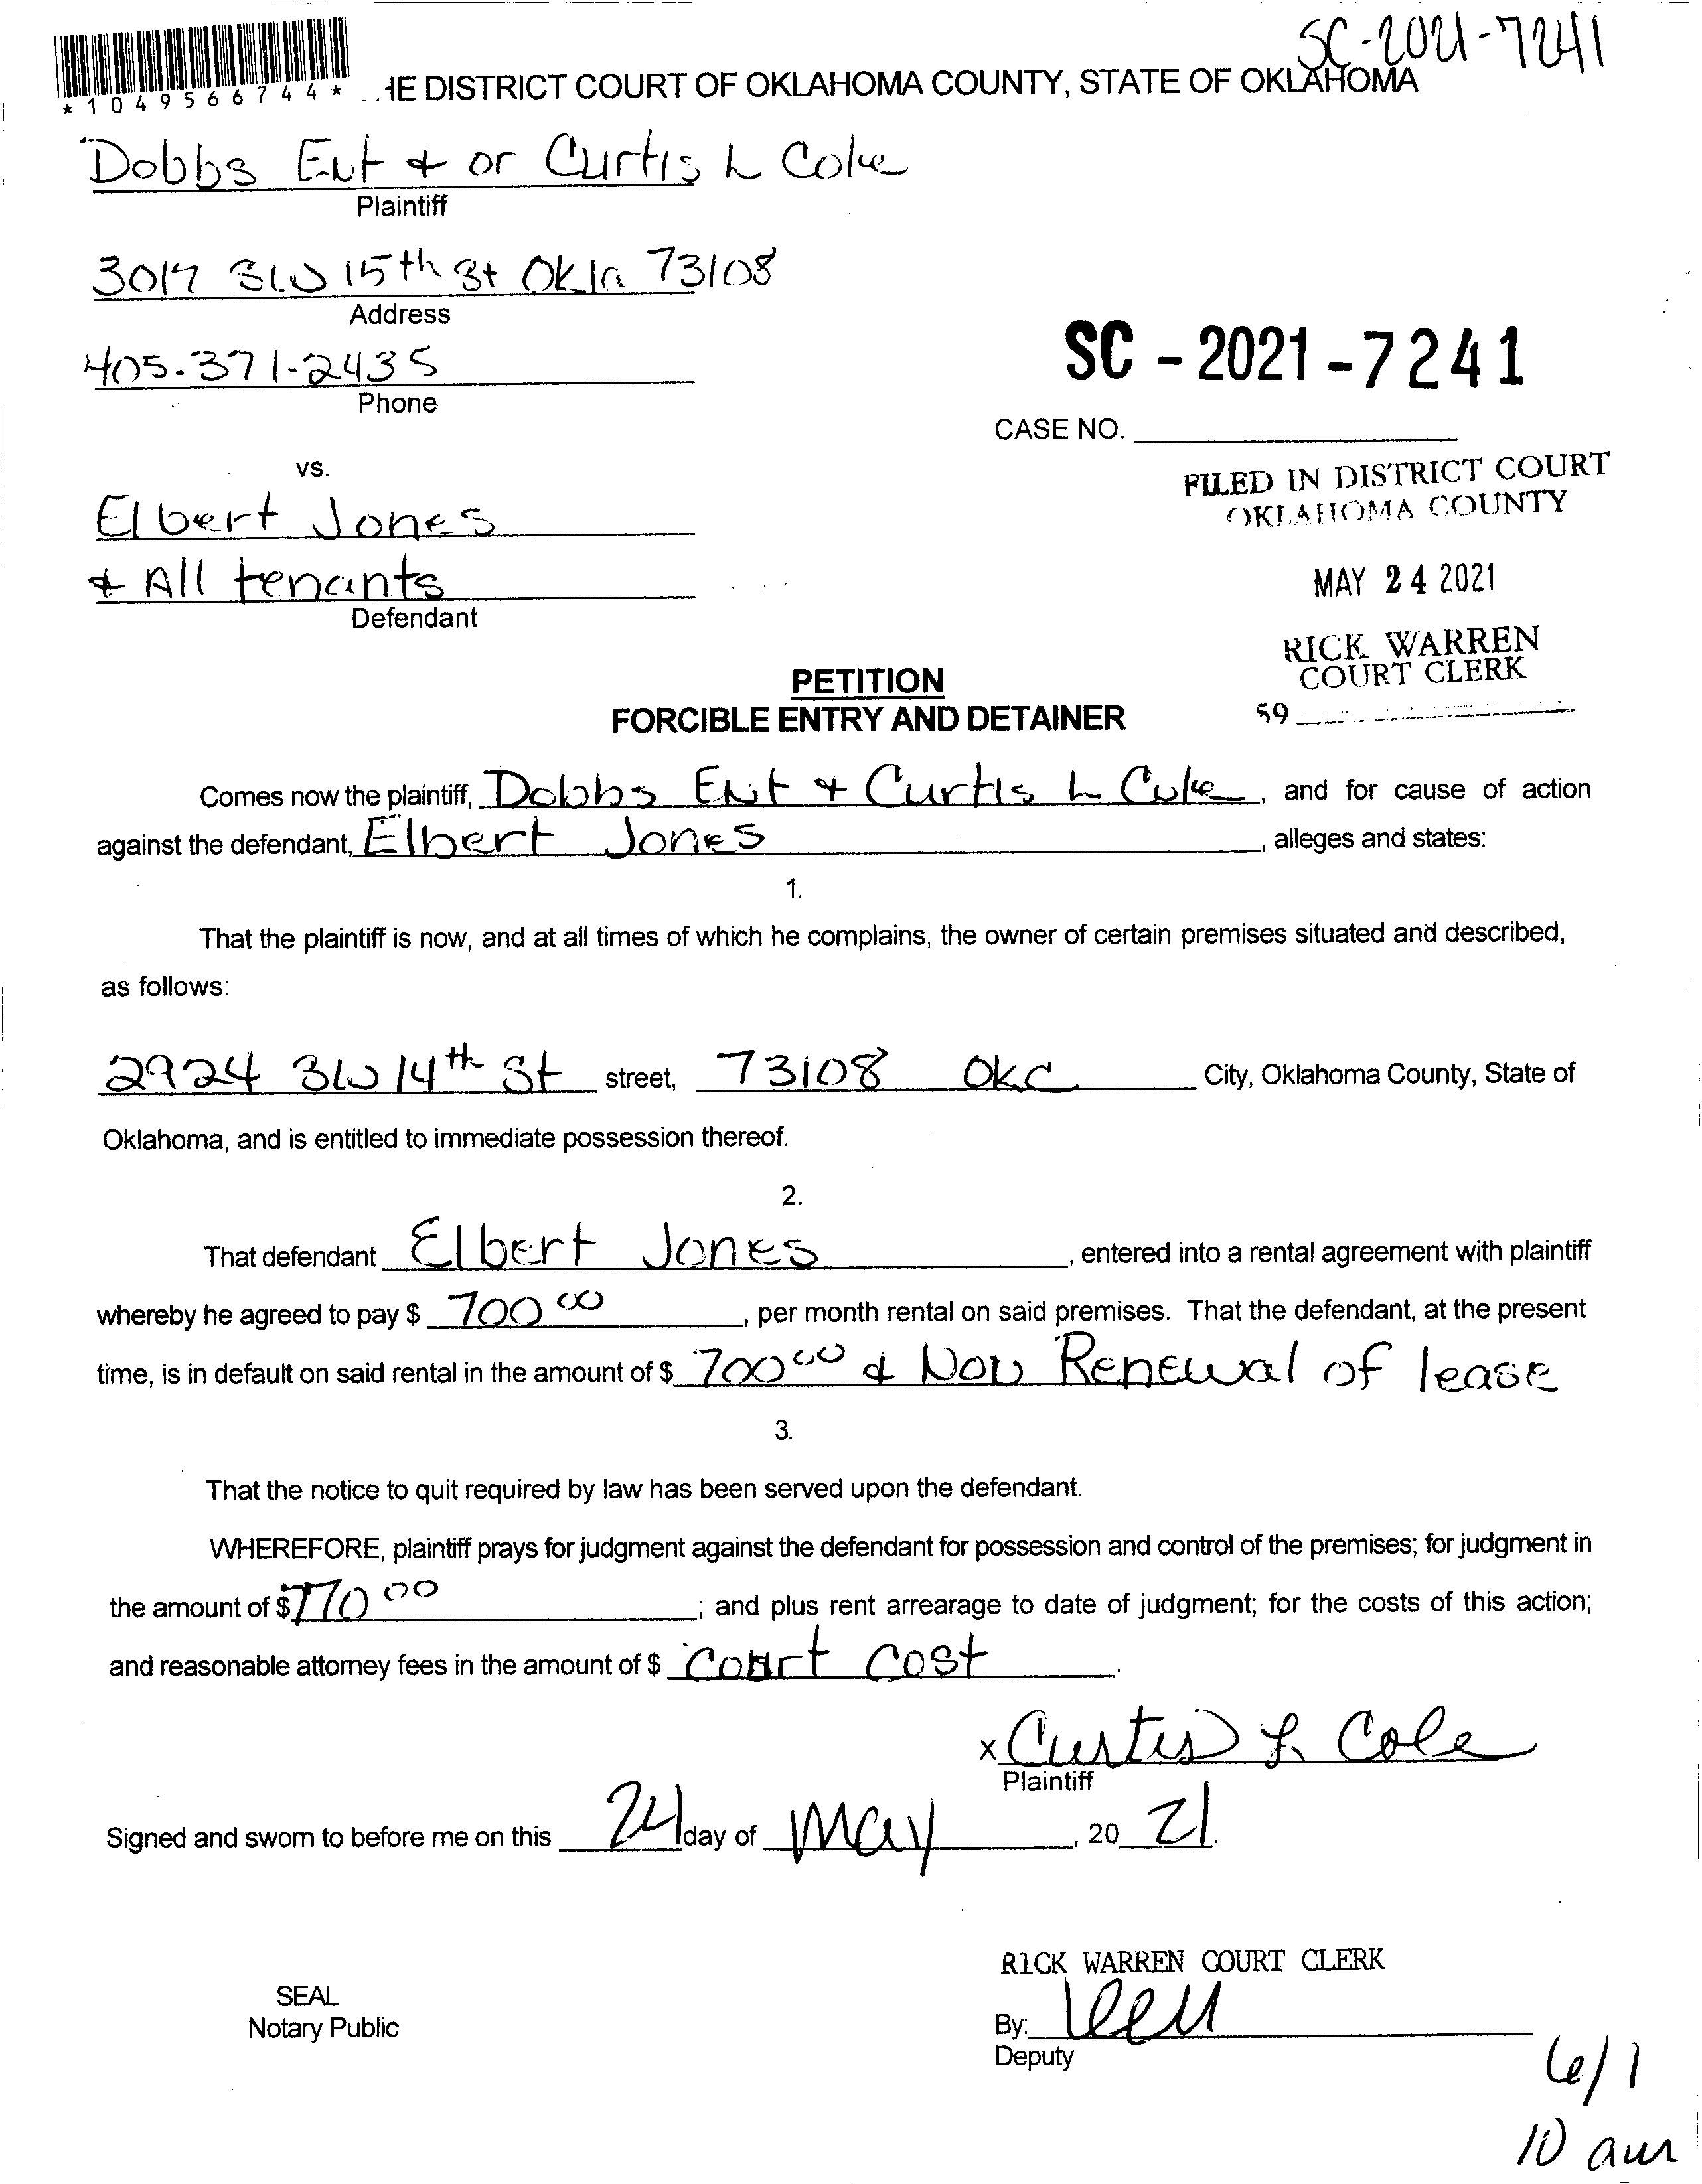 SC-2021-7241
*1049566744* HE DISTRICT COURT OF OKLAHOMA COUNTY, STATE OF OKLAHOMA
Dobbs Ent & or Curtis L Cole
Plaintiff
3017 SW 15th St Okla 73108
Address
405-371-2435
Phone
SC - 2021 - 7241
CASE NO.
vs.
FILED IN DISTRICT COURT
OKLAHOMA COUNTY
Elbert Jones
& All tenants
Defendant
MAY 24 2021
RICK WARREN
COURT CLERK
59
PETITION
FORCIBLE ENTRY AND DETAINER
Comes now the plaintiff, Dobbs Ent & Curtis L Cole, and for cause of action
against the defendant, Elbert Jones, alleges and states:
1.
That the plaintiff is now, and at all times of which he complains, the owner of certain premises situated and described,
as follows:
2924 SW 14th St street, 73108 OKC City, Oklahoma County, State of
Oklahoma, and is entitled to immediate possession thereof.
2.
That defendant Elbert Jones, entered into a rental agreement with plaintiff
whereby he agreed to pay $ 700 00, per month rental on said premises. That the defendant, at the present
time, is in default on said rental in the amount of $ 700 00 & Non Renewal of lease
3.
That the notice to quit required by law has been served upon the defendant.
WHEREFORE, plaintiff prays for judgment against the defendant for possession and control of the premises; for judgment in
the amount of $ 770 00; and plus rent arrearage to date of judgment; for the costs of this action;
and reasonable attorney fees in the amount of $ Court cost.
x Curtis L Cole
Plaintiff
Signed and sworn to before me on this 24 day of May, 20 21.
RICK WARREN COURT CLERK
SEAL
Notary Public
By:
Deputy
6/1
10 am